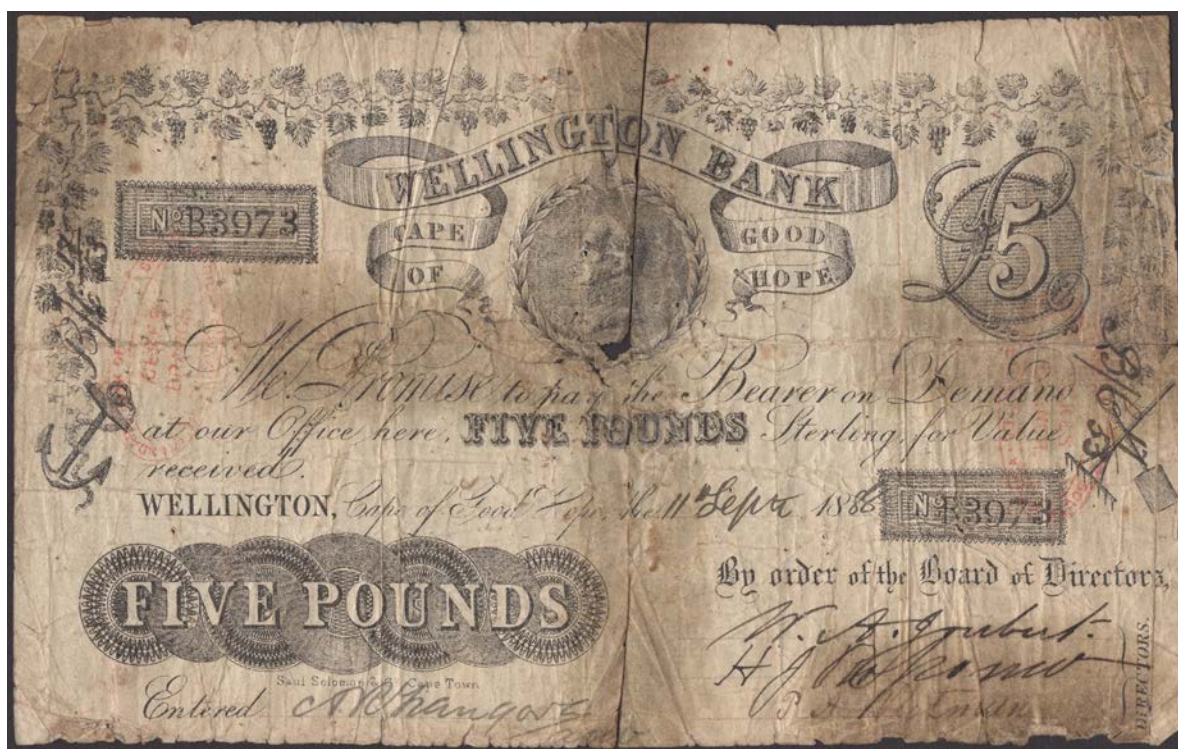 WELLINGTON BANK
CAPE OF GOOD HOPE
£5
No B3973
We Promise to pay the Bearer on Demand
at our Office here, FIVE POUNDS Sterling, for Value
received.
WELLINGTON, Cape of Good Hope, the 11th Sept 1886
No B3973
FIVE POUNDS
By order of the Board of Directors,
W. A. Joubert.
H J
DIRECTORS.
Saul Solomon & Co Cape Town
Entered